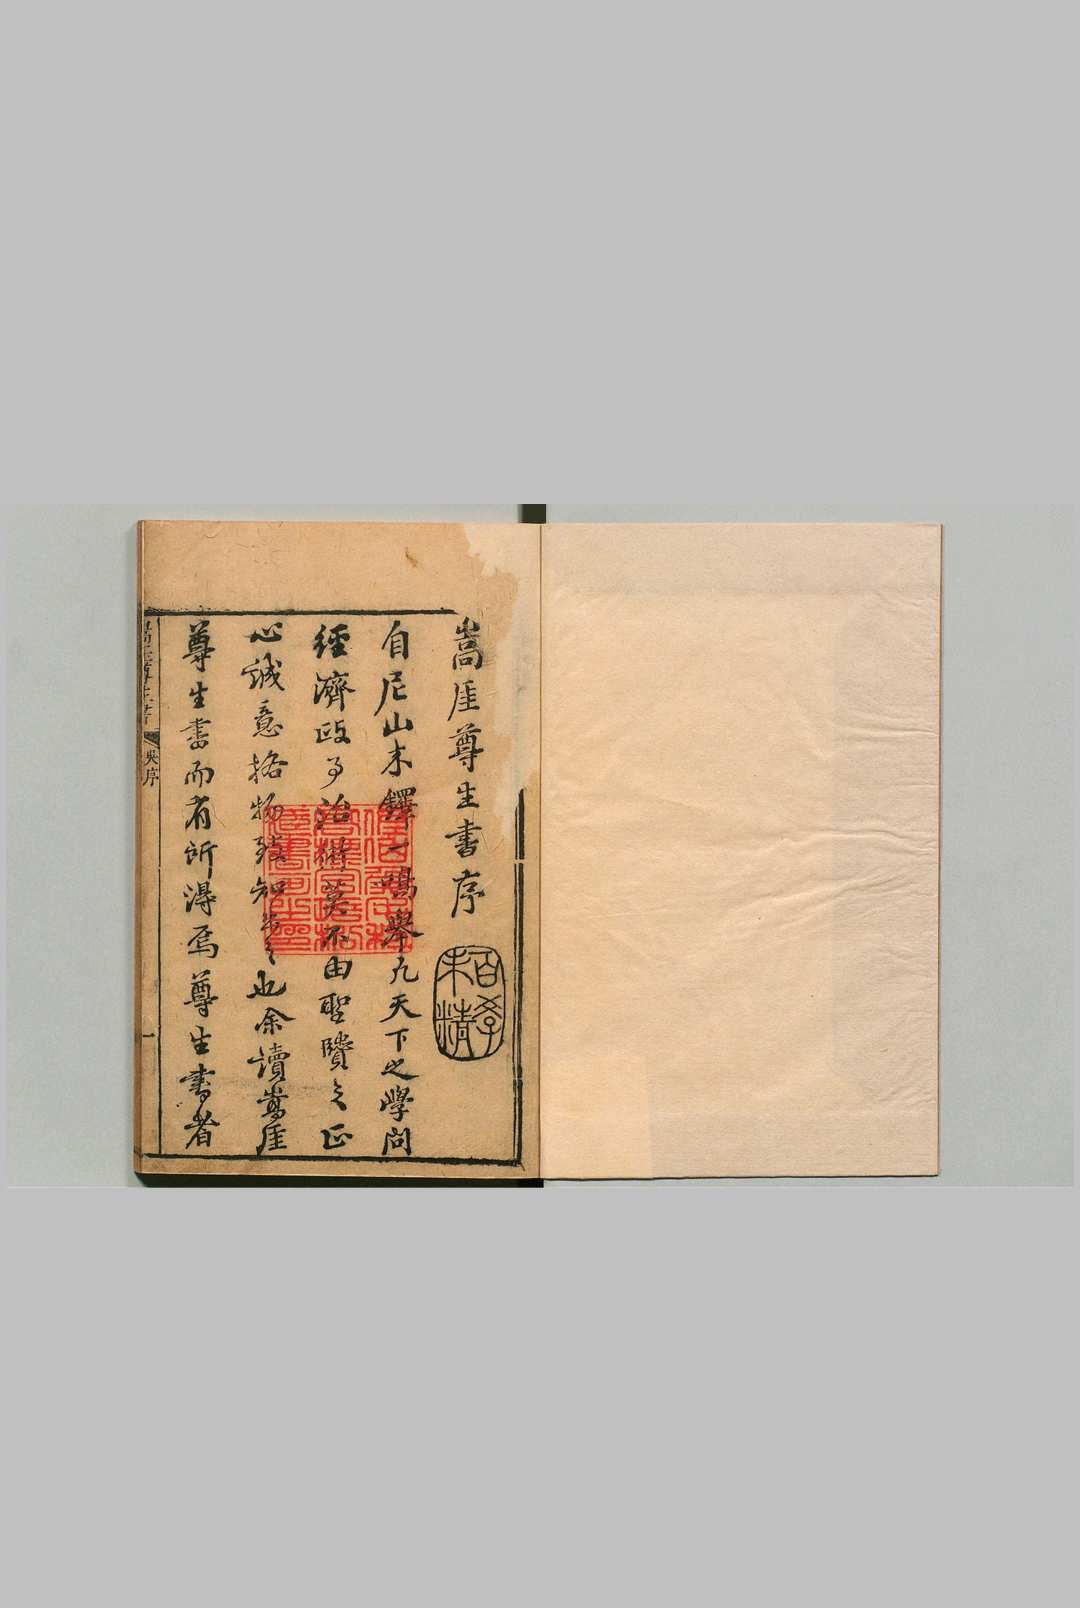 嵩厓尊生書序
百學
未精
自尼山木鐸一鳴舉凡天下之學問
經濟政事治術莫不由聖賢之正
心誠意格物致知者也余讀嵩厓
尊生書而有所得焉尊生書者
嵩厓尊生書
吳序
一